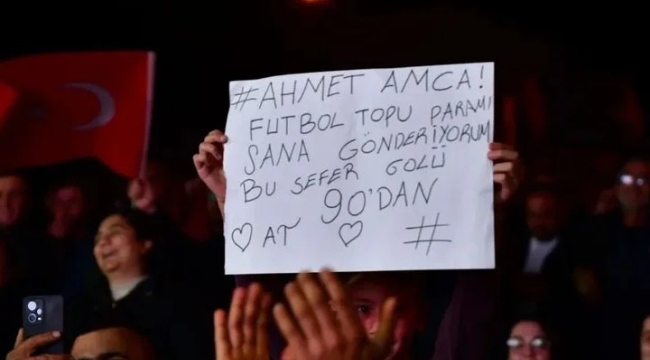 #AHMET AMCA!
FUTBOL TOPU PARAMI
SANA GÖNDERİYORUM
BU SEFER GOLÜ
90'DAN
♡ AT ♡ #